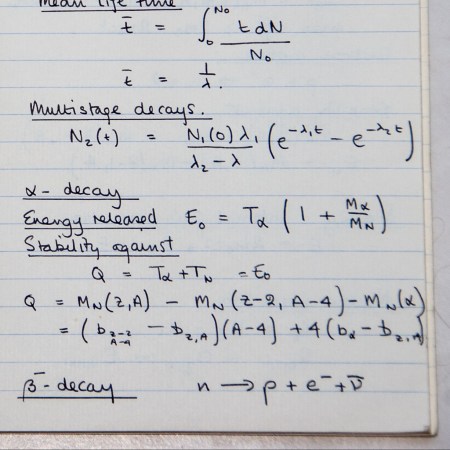 Mean life time
t̄ = ∫₀^N₀ t dN / N₀
t̄ = 1/λ.
Multistage decays.
N₂(t) = N₁(0) λ₁ / (λ₂ - λ) (e^(-λ₁t) - e^(-λ₂t))
α - decay
Energy released E₀ = Tα (1 + Mα/MN)
Stability against
Q = Tα + TN = E₀
Q = MN(Z,A) - MN(Z-2, A-4) - MN(α)
= (b_(Z-2, A-4) - b_(Z,A))(A-4) + 4(bα - b_(Z,A))
β⁻ - decay n → p + e⁻ + ν̄